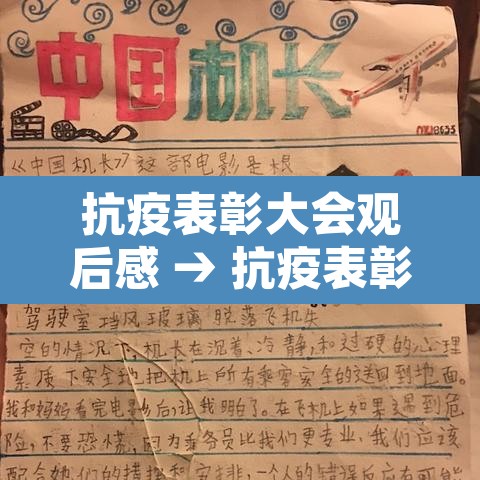 中国机长
《中国机长》这部电影是根
抗疫表彰大会观
后感 → 抗疫表彰
驾驶室挡风玻璃脱落飞机失
空的情况下,机长在沉着、冷静,和过硬的心理
素质下安全地把机上所有乘客安全的送回到地面。
我和妈妈看完电影后,让我明白了。在飞机上如果遇到危
险,不要恐慌,因为乘务员比我们更专业,我们应该
配合她们的指挥和安排,一个人的错误反应有可能